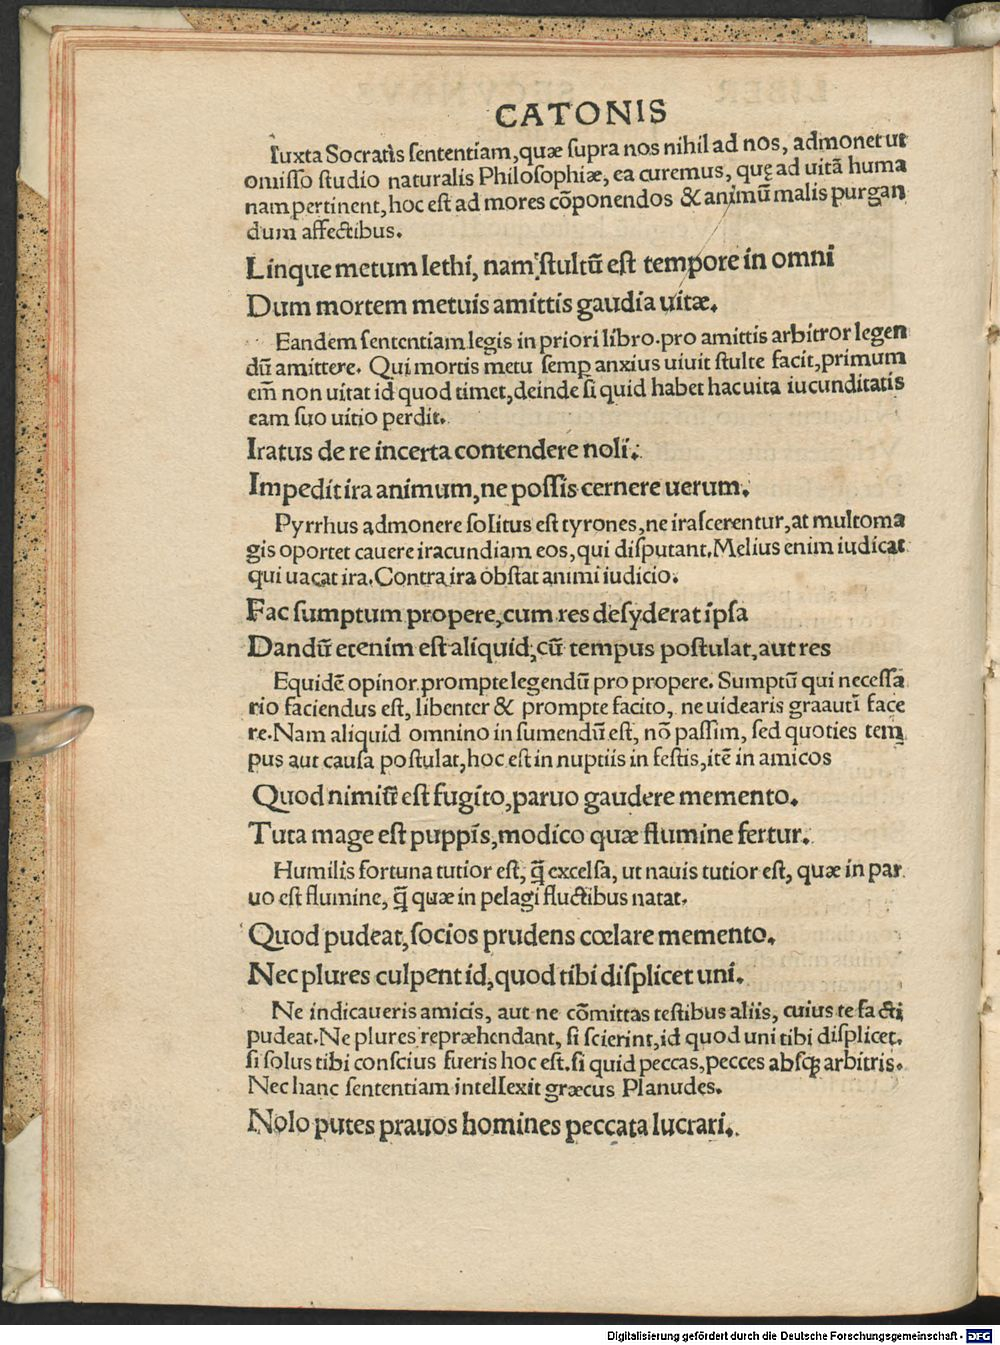 CATONIS
Iuxta Socratis sententiam,quæ supra nos nihil ad nos, admonet ut
omisso studio naturalis Philosophiæ, ea curemus, quę ad uitā huma
nam pertinent, hoc est ad mores cōponendos & animū malis purgan
dum affectibus.
Linque metum lethi, nam stultū est tempore in omni
Dum mortem metuis amittis gaudia uitæ.
Eandem sententiam legis in priori libro.pro amittis arbitror legen
dū amittere. Qui mortis metu semp anxius uiuit stulte facit,primum
em̄ non uitat id quod timet,deinde si quid habet hac uita iucunditatis
eam suo uitio perdit.
Iratus de re incerta contendere noli.
Impedit ira animum,ne possis cernere uerum.
Pyrrhus admonere solitus est tyrones,ne irascerentur,at multo ma
gis oportet cauere iracundiam eos,qui disputant.Melius enim iudicat
qui uacat ira.Contra ira obstat animi iudicio.
Fac sumptum propere,cum res desyderat ipsa
Dandū etenim est aliquid,cū tempus postulat,aut res
Equidē opinor prompte legendū pro propere. Sumptū qui necessa
rio faciendus est, libenter & prompte facito, ne uidearis graautī face
re.Nam aliquid omnino in sumendū est, nō passim, sed quoties tem
pus aut causa postulat,hoc est in nuptiis in festis,itē in amicos
Quod nimiū est fugito,paruo gaudere memento.
Tuta mage est puppis,modico quæ flumine fertur.
Humilis fortuna tutior est, q̄ excelsa, ut nauis tutior est, quæ in par
uo est flumine, q̄ quæ in pelagi fluctibus natat.
Quod pudeat,socios prudens cœlare memento.
Nec plures culpent id,quod tibi displicet uni.
Ne indicaueris amicis, aut ne cōmittas testibus aliis, cuius te facti
pudeat.Ne plures repræhendant, si scierint,id quod uni tibi displicet.
si solus tibi conscius fueris hoc est.si quid peccas,pecces absq; arbitris.
Nec hanc sententiam intellexit græcus Planudes.
Nolo putes prauos homines peccata lucrari.
Digitalisierung gefördert durch die Deutsche Forschungsgemeinschaft - DFG